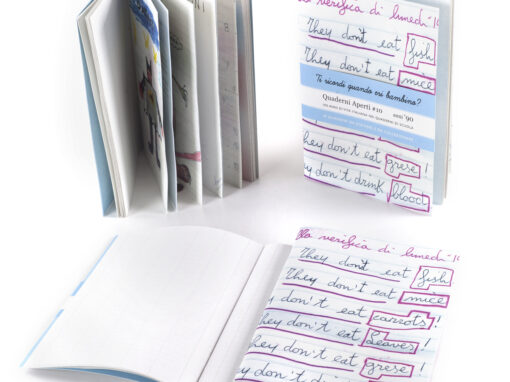 verifica di lunedì
They don't eat fish
They don't eat mice
Ti ricordi quando eri bambino?
Quaderni Aperti #10 anni '90
hey don't eat grese!
hey don't drink blood
verifica di lunedì
They don't eat fish
They don't eat mice
hey don't eat carrots!
hey don't eat leaves!
hey don't eat grese!
hey don't drink blood